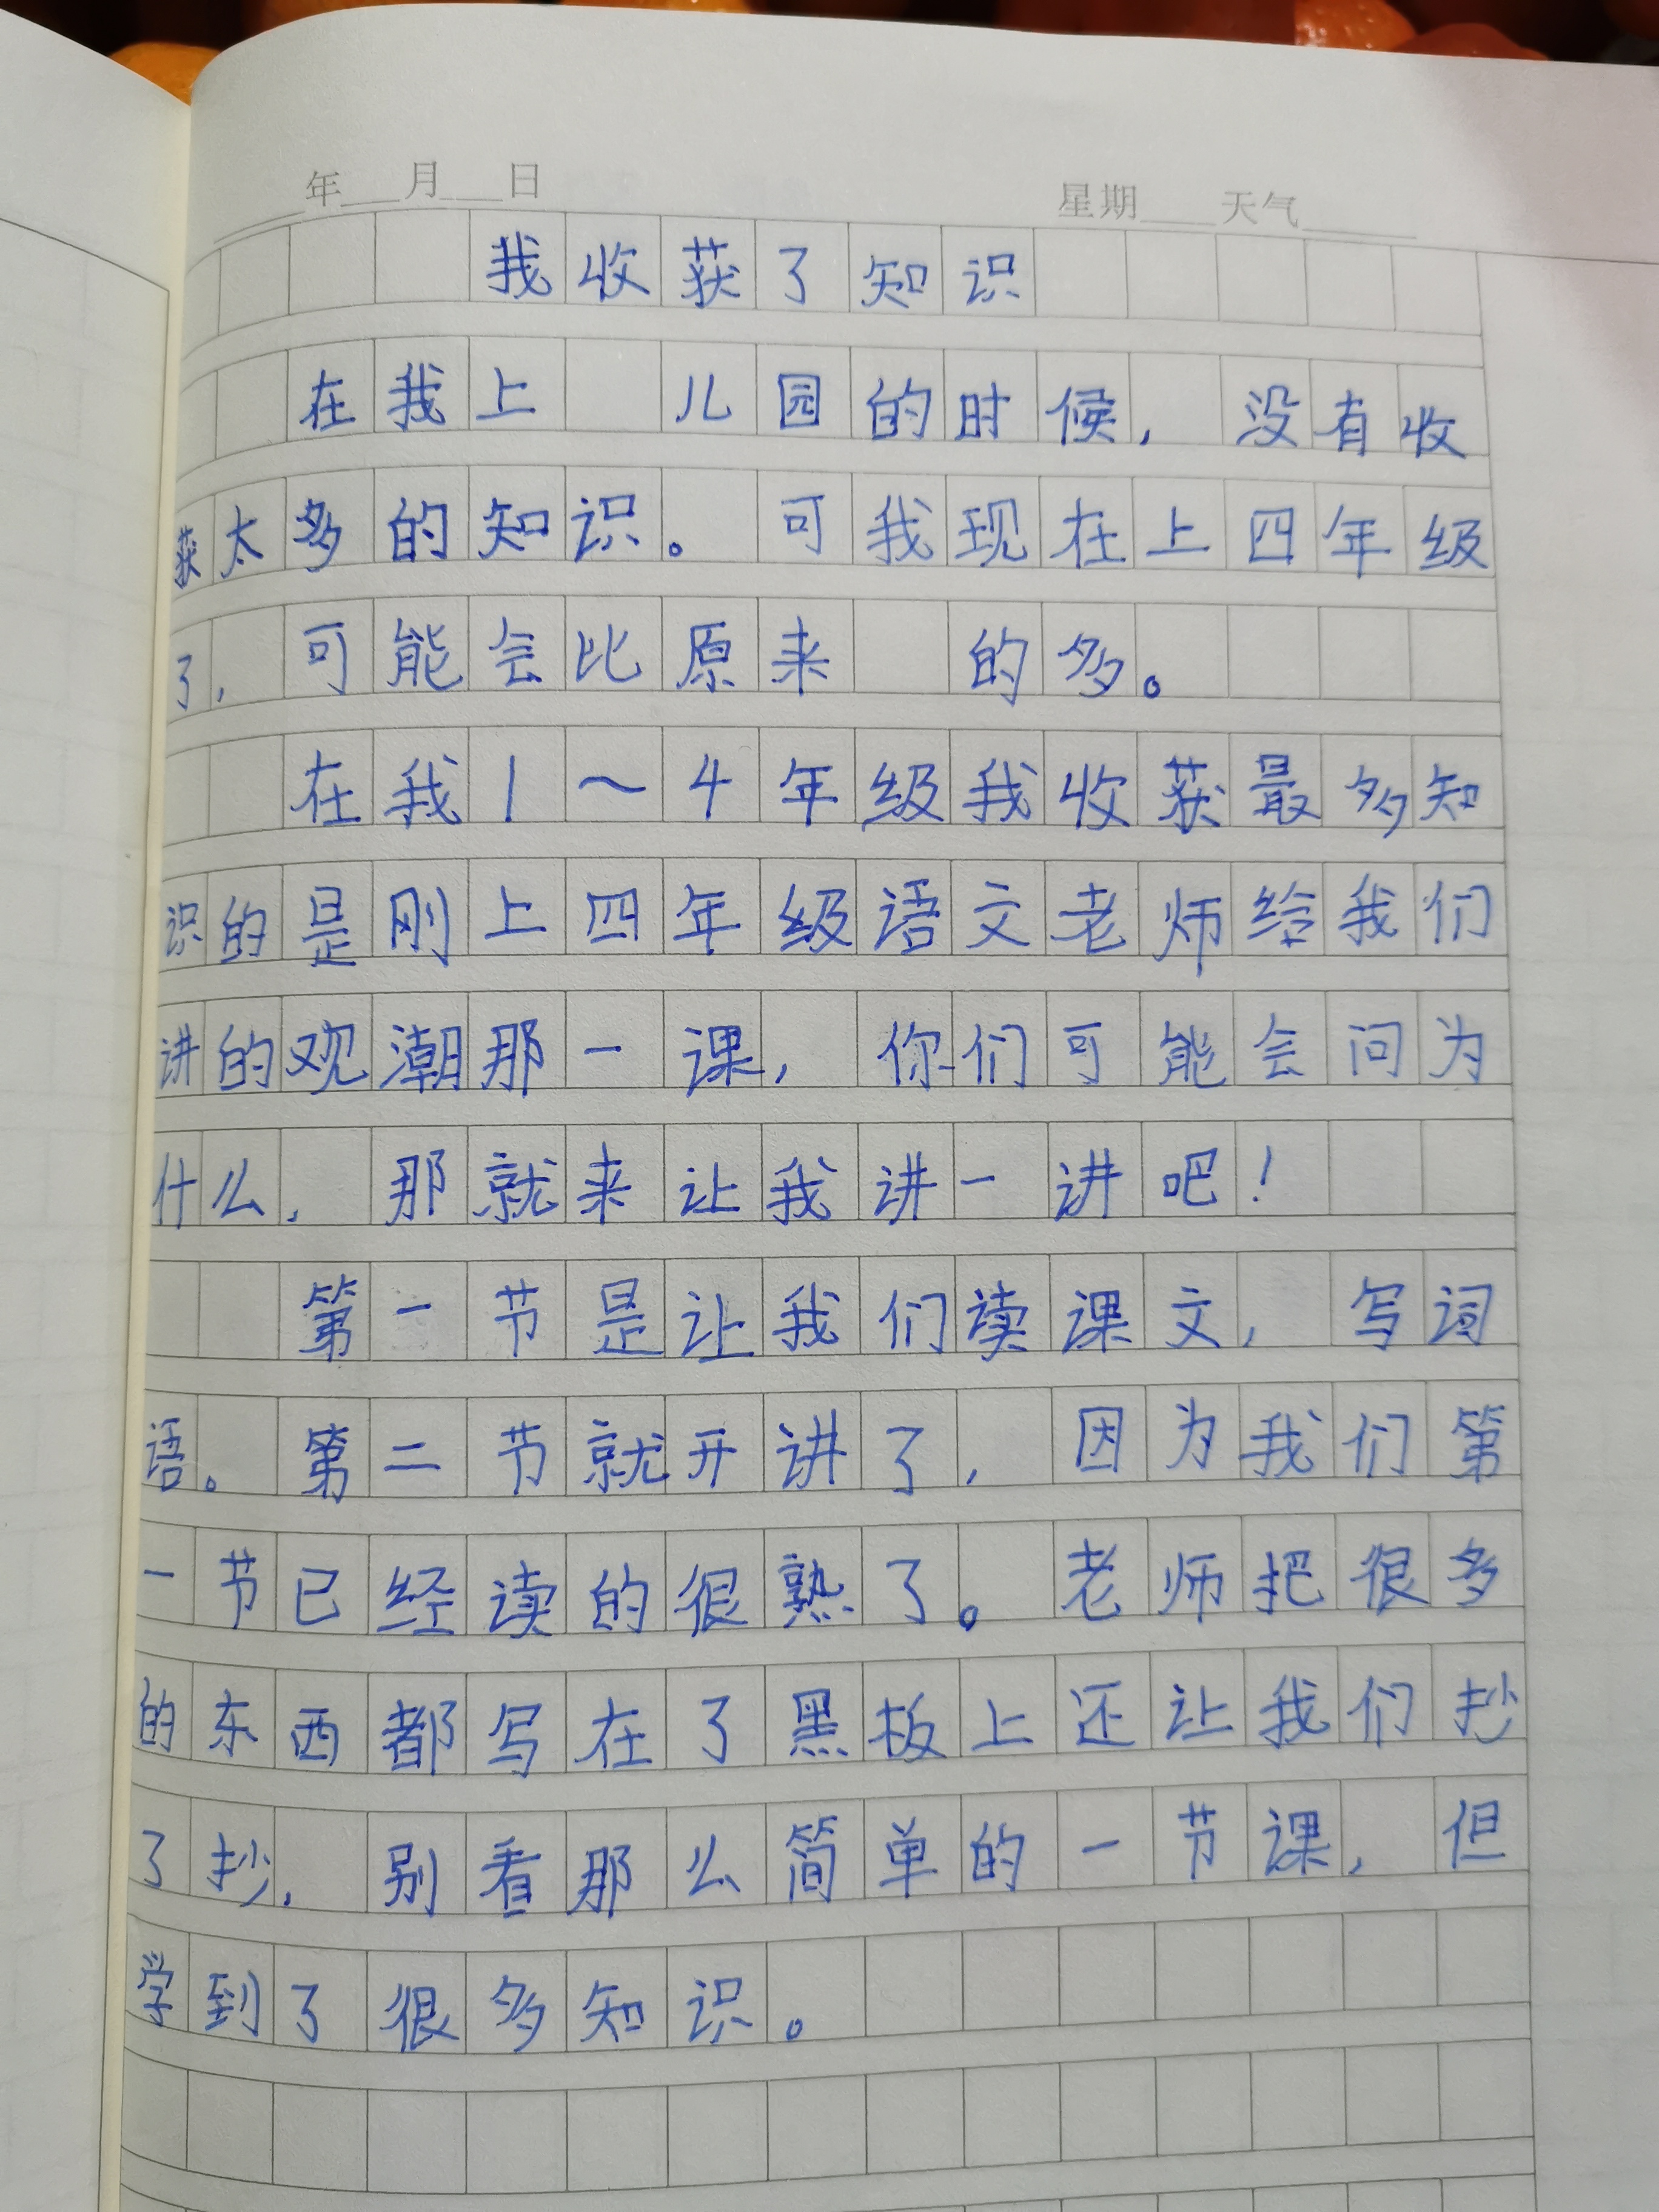 年 月 日 星期 天气
我收获了知识
在我上 儿园的时候，没有收
获太多的知识。可我现在上四年级
了，可能会比原来 的多。
在我1～4年级我收获最多知
识的是刚上四年级语文老师给我们
讲的观潮那一课，你们可能会问为
什么，那就来让我讲一讲吧！
第一节是让我们读课文，写词
语。第二节就开讲了，因为我们第
一节已经读的很熟了。老师把很多
的东西都写在了黑板上还让我们抄
了抄，别看那么简单的一节课，但
学到了很多知识。